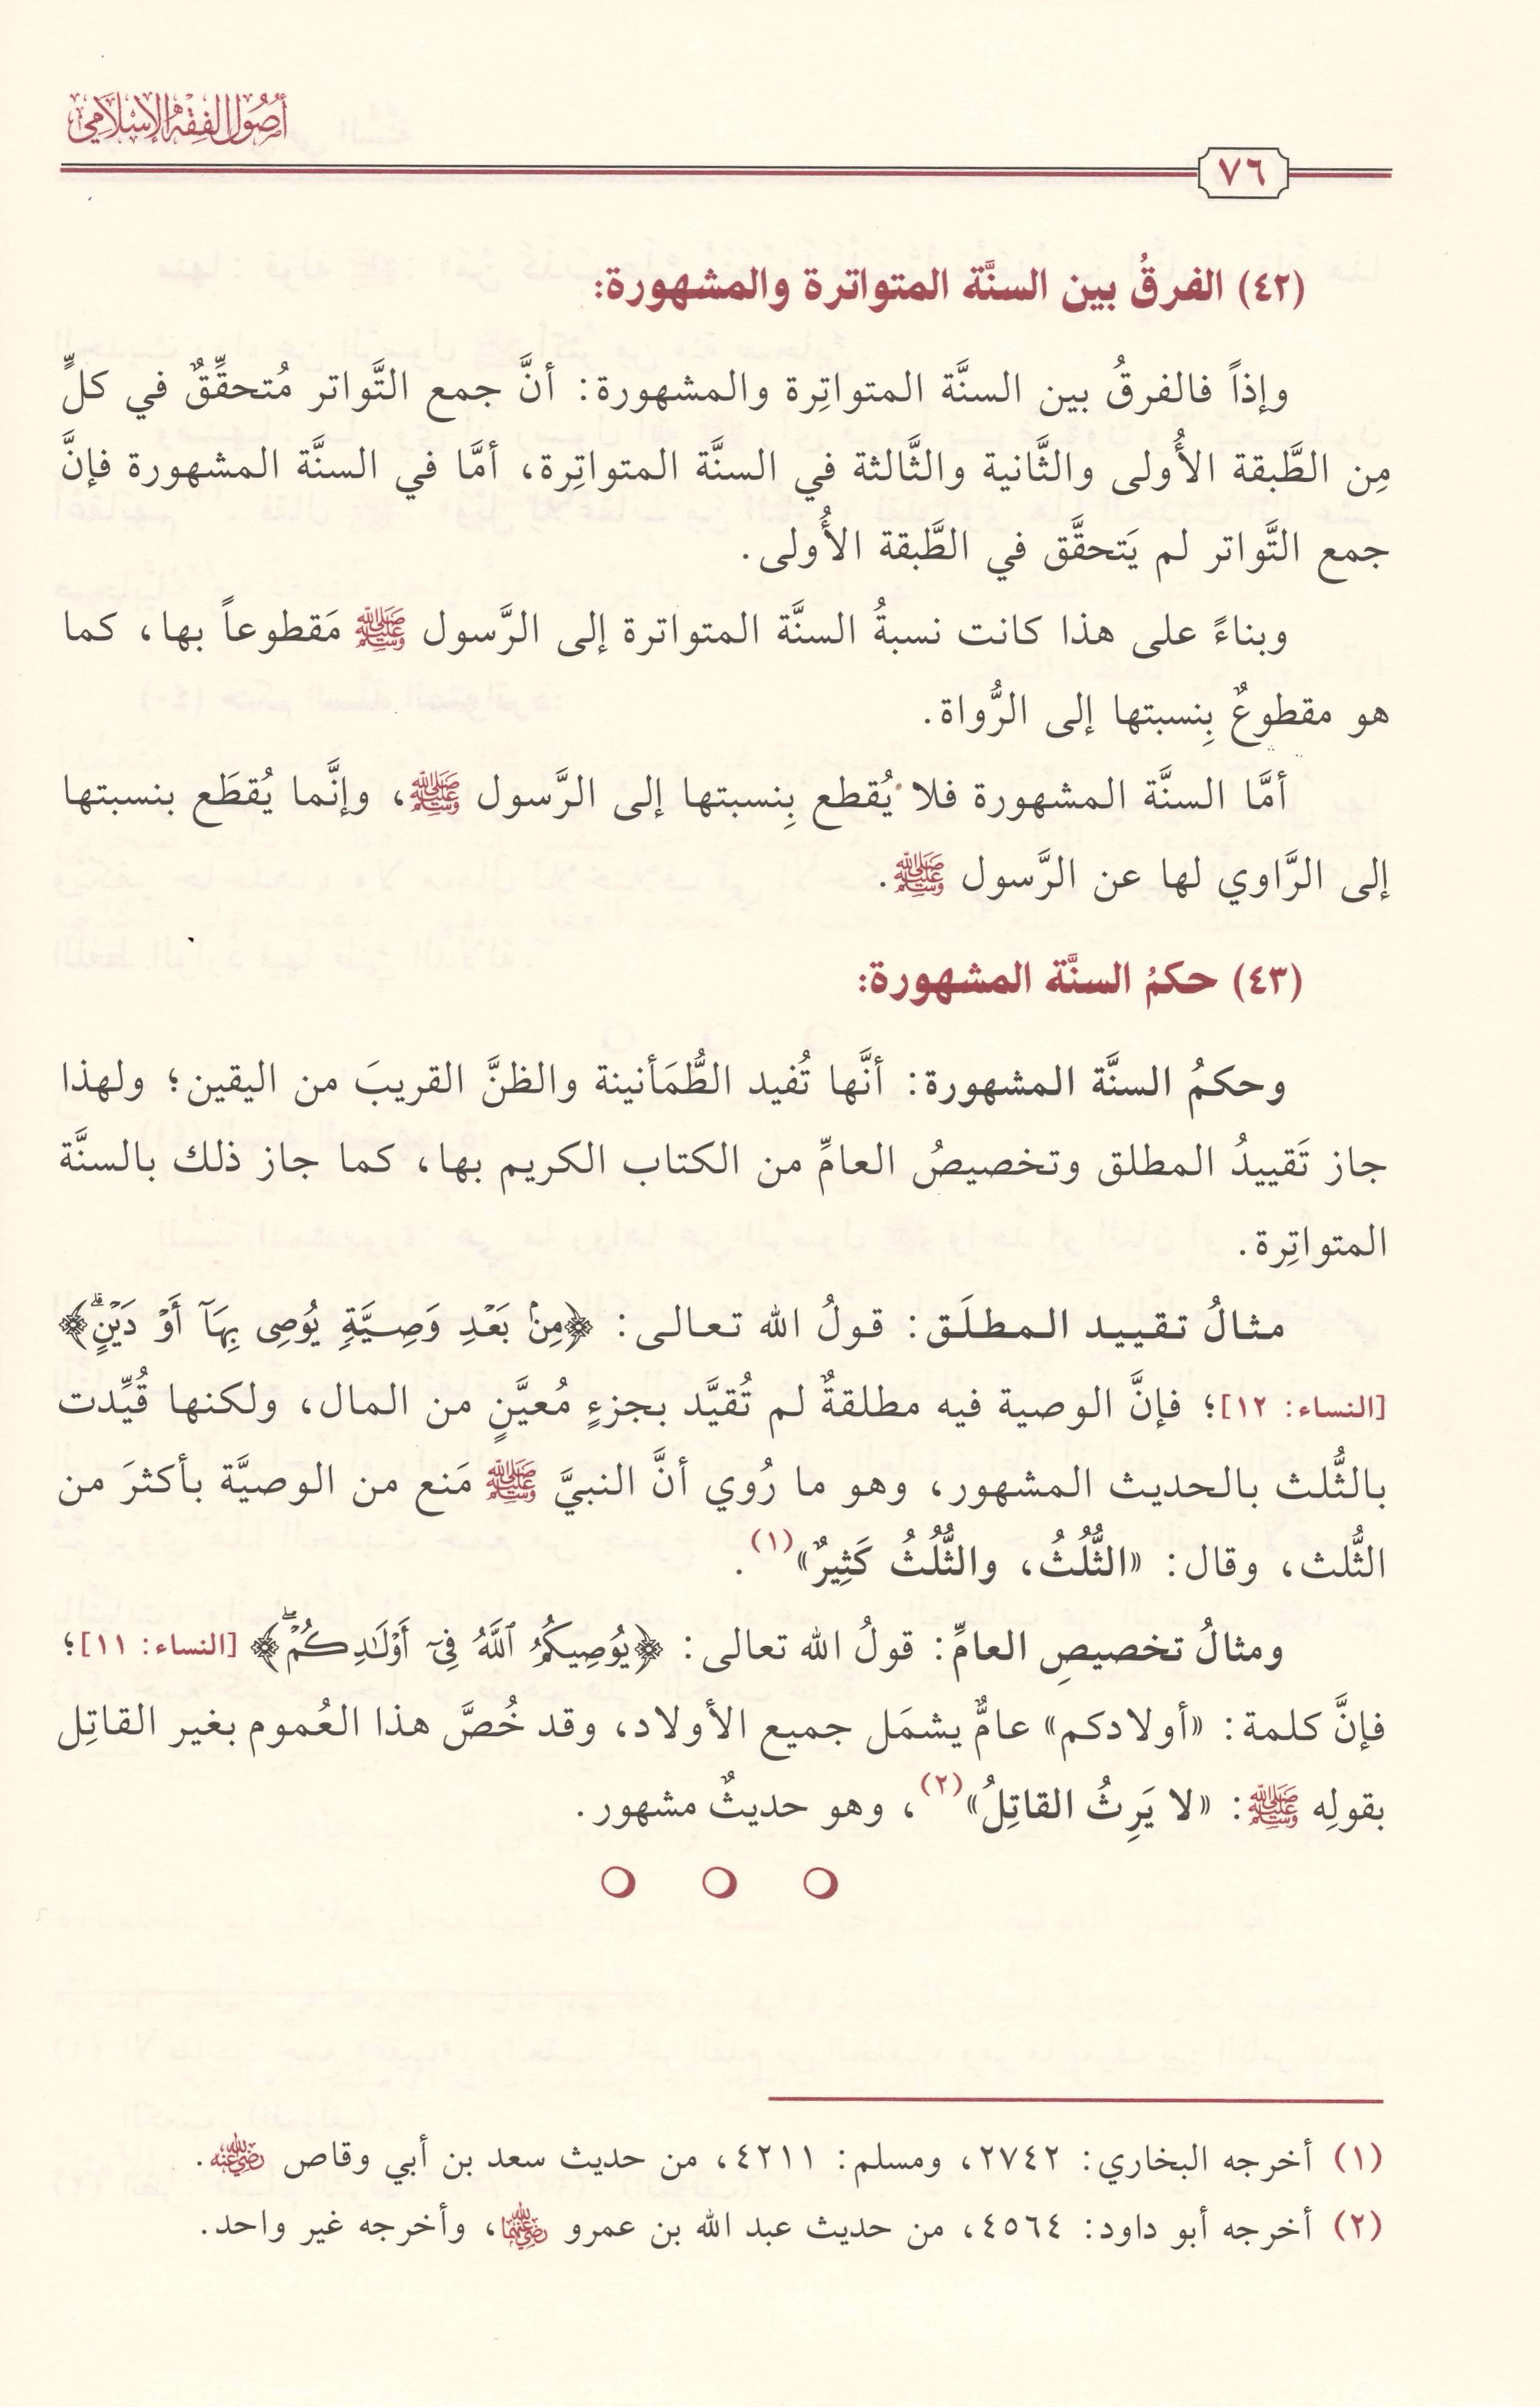 أصول الفقه الإسلامي
٧٦
(٤٢) الفرقُ بين السنَّة المتواترة والمشهورة:
وإذاً فالفرقُ بين السنَّة المتواتِرة والمشهورة: أنَّ جمع التَّواتر مُتحقِّقٌ في كلٍّ
مِن الطَّبقة الأُولى والثَّانية والثَّالثة في السنَّة المتواتِرة، أمَّا في السنَّة المشهورة فإنَّ
جمع التَّواتر لم يَتحقَّق في الطَّبقة الأُولى.
وبناءً على هذا كانت نسبةُ السنَّة المتواترة إلى الرَّسول ﷺ مَقطوعاً بها، كما
هو مقطوعٌ بِنسبتها إلى الرُّواة.
أمَّا السنَّة المشهورة فلا يُقطع بِنسبتها إلى الرَّسول ﷺ، وإنَّما يُقطَع بنسبتها
إلى الرَّاوي لها عن الرَّسول ﷺ.
(٤٣) حكمُ السنَّة المشهورة:
وحكمُ السنَّة المشهورة: أنَّها تُفيد الطُّمَأنينة والظنَّ القريبَ من اليقين؛ ولهذا
جاز تَقييدُ المطلق وتخصيصُ العامِّ من الكتاب الكريم بها، كما جاز ذلك بالسنَّة
المتواتِرة.
مثالُ تقييد المطلَق: قولُ الله تعالى: ﴿مِنۢ بَعۡدِ وَصِيَّةٖ يُوصِي بِهَآ أَوۡ دَيۡنٍۗ﴾
[النساء: ١٢]؛ فإنَّ الوصية فيه مطلقةٌ لم تُقيَّد بجزءٍ مُعيَّنٍ من المال، ولكنها قُيِّدت
بالثُّلث بالحديث المشهور، وهو ما رُوي أنَّ النبيَّ ﷺ مَنع من الوصيَّة بأكثرَ من
الثُّلث، وقال: «الثُّلُثُ، والثُّلُثُ كَثِيرٌ»(١).
ومثالُ تخصيصِ العامِّ: قولُ الله تعالى: ﴿يُوصِيكُمُ ٱللَّهُ فِيٓ أَوۡلَٰدِكُمۡۖ﴾ [النساء: ١١]؛
فإنَّ كلمة: «أولادكم» عامٌّ يشمَل جميع الأولاد، وقد خُصَّ هذا العُموم بغير القاتِل
بقولِه ﷺ: «لا يَرِثُ القاتِلُ»(٢)، وهو حديثٌ مشهور.
(١) أخرجه البخاري: ٢٧٤٢، ومسلم: ٤٢١١، من حديث سعد بن أبي وقاص رضي الله عنه.
(٢) أخرجه أبو داود: ٤٥٦٤، من حديث عبد الله بن عمرو رضي الله عنهما، وأخرجه غير واحد.